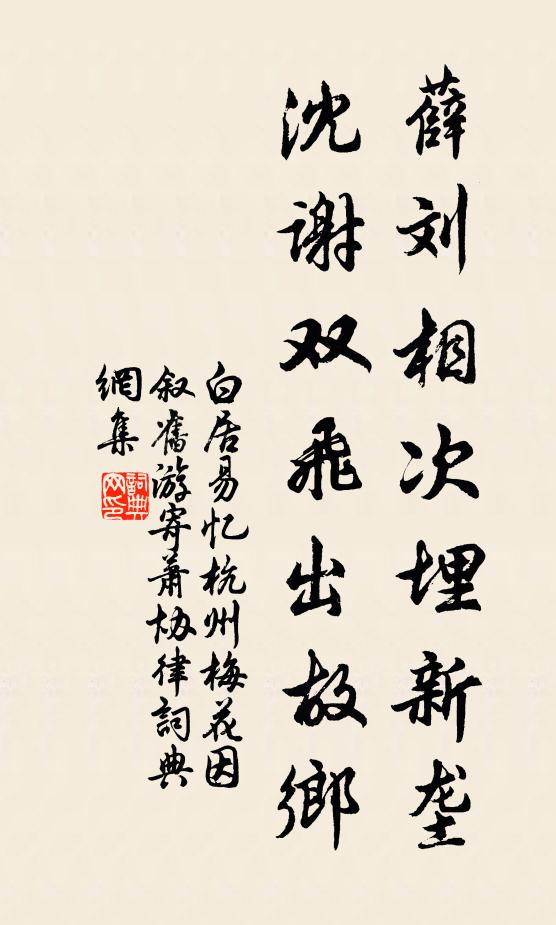 薛刘相次埋新垄
沈谢双飞出故鄉
白居易忆杭州梅花因
叙舊游寄萧协律詞典
網集
詞典
网印